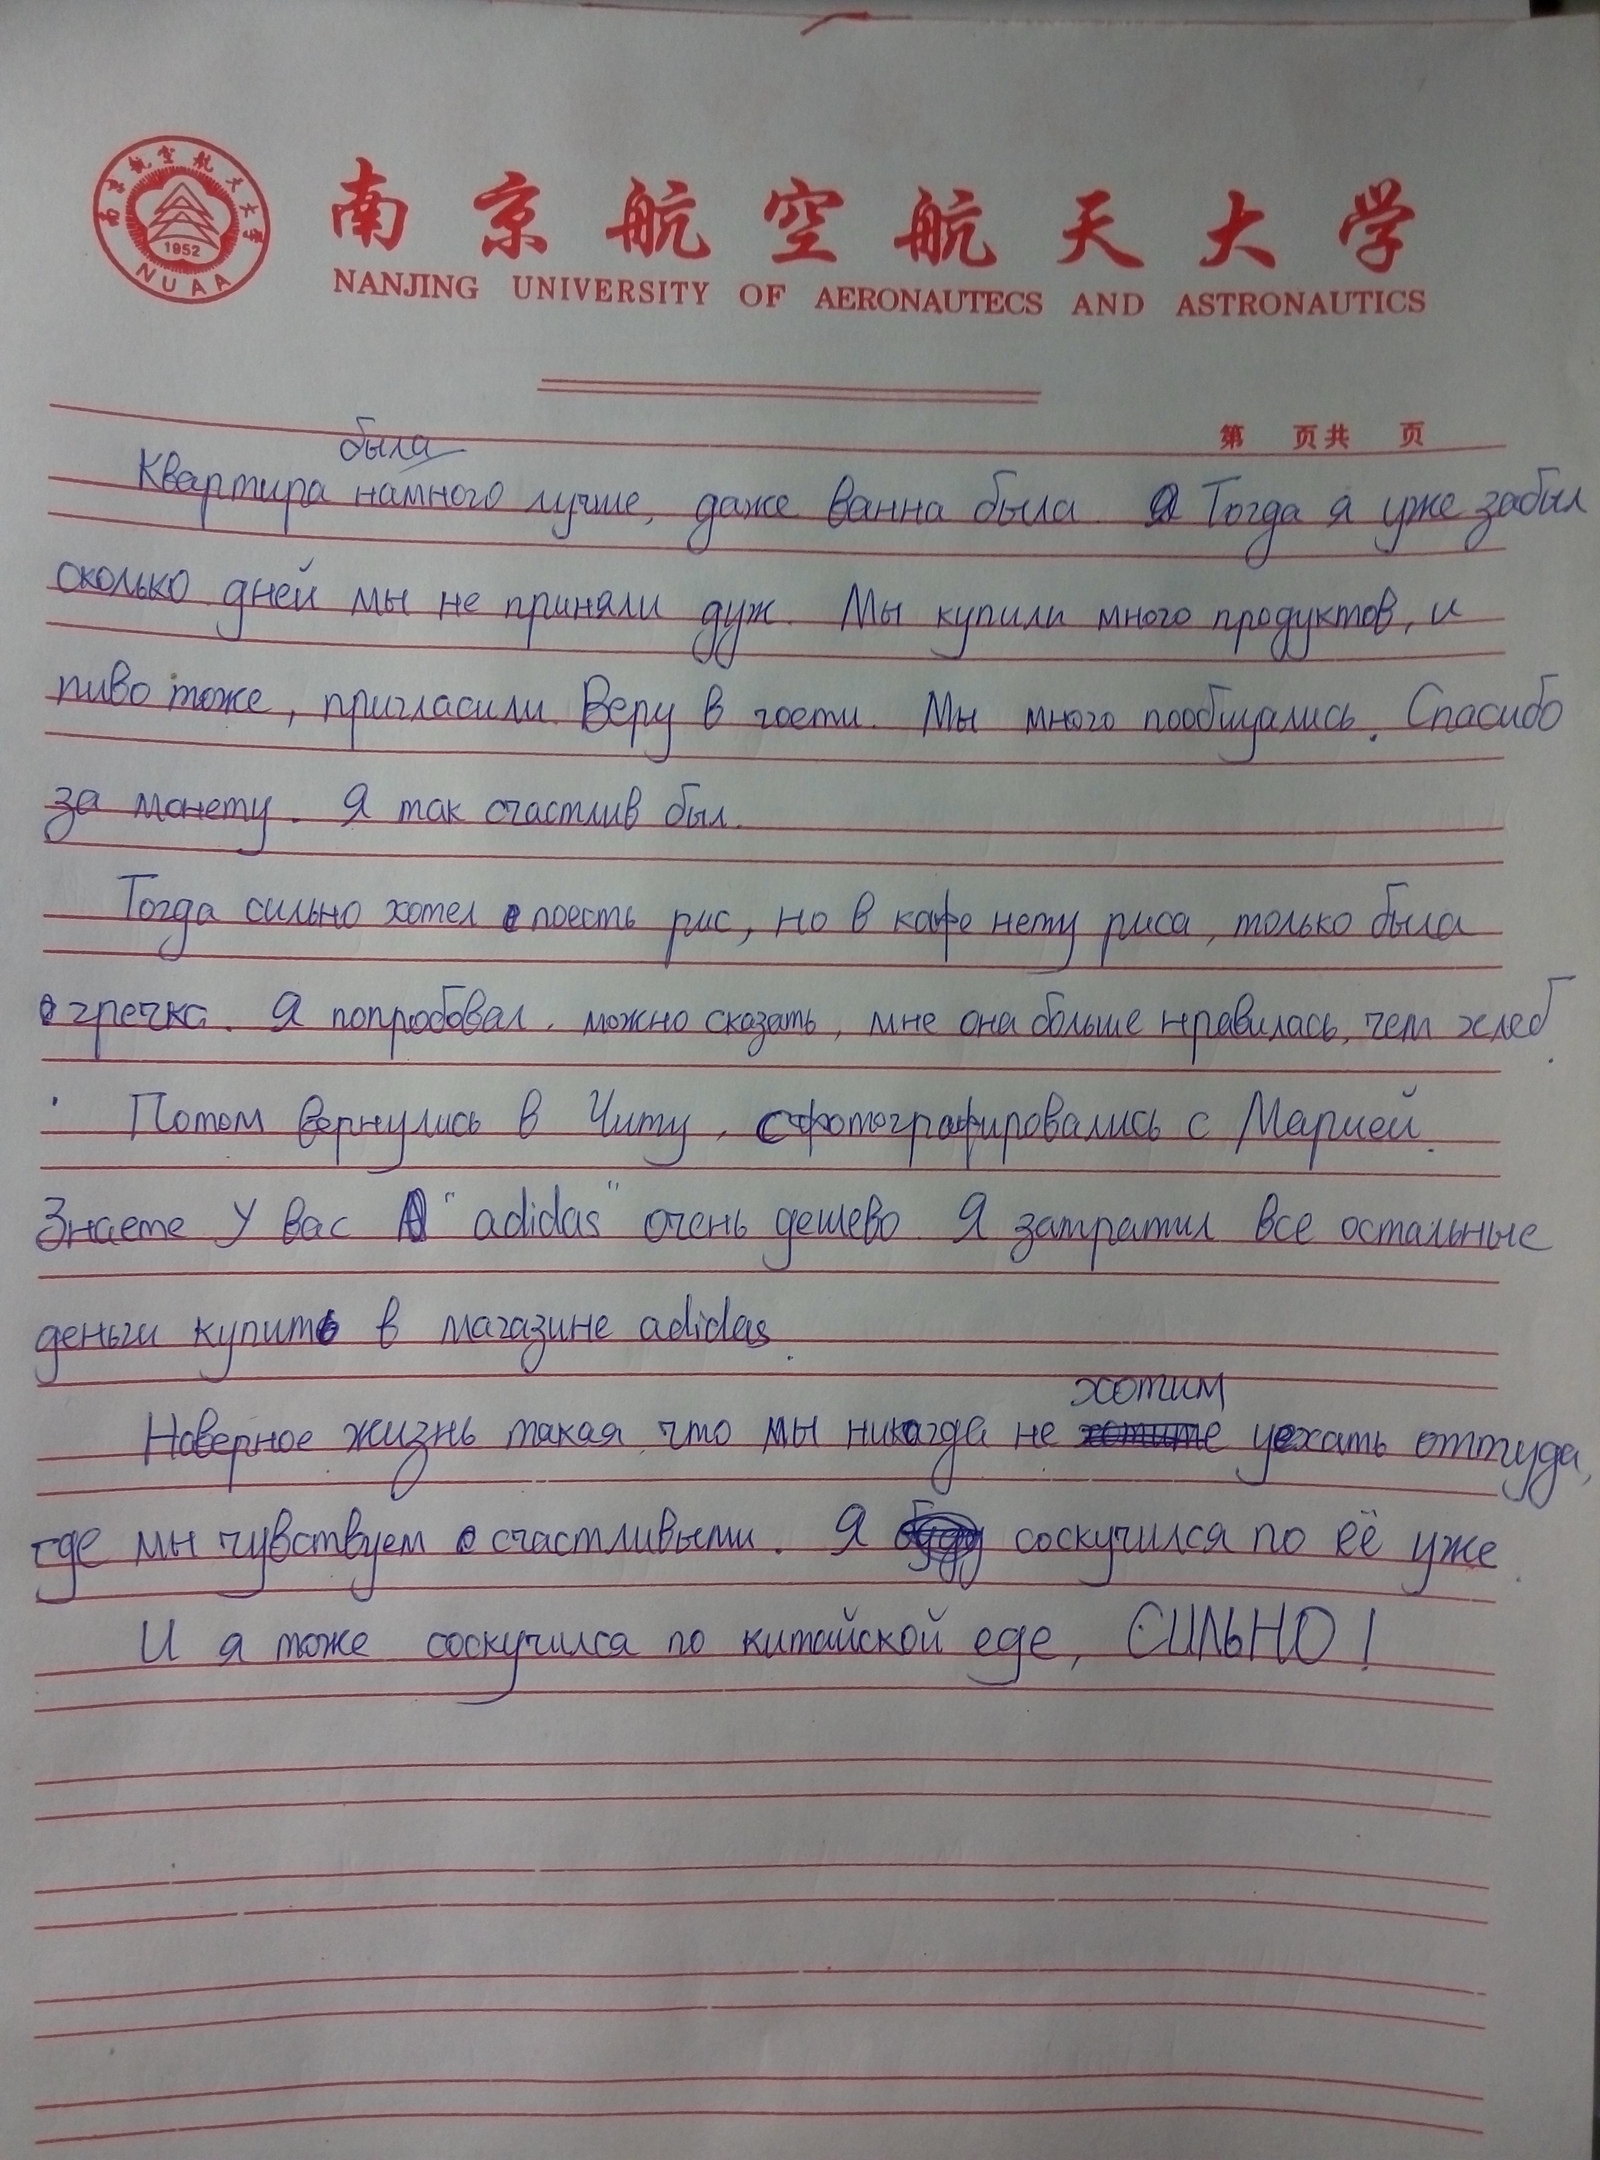 南京航空航天大学
1952
NUAA
南京航空航天大学
NANJING UNIVERSITY OF AERONAUTECS AND ASTRONAUTICS
第 页共 页
была
Квартира намного лучше, даже ванна была. Тогда я уже забыл
сколько дней мы не приняли дуж. Мы купили много продуктов, и
пиво тоже, пригласили Веру в гости. Мы много пообщались. Спасибо
за монету. Я так счастлив был.
Тогда сильно хотел поесть рис, но в кафе нету риса, только была
гречка. Я попробовал, можно сказать, мне она больше нравилась, чем хлеб.
Потом вернулись в Читу, сфотографировались с Марией.
Знаете У вас "adidas" очень дешево. Я затратил все остальные
деньги купить в магазине adidas.
хотим
Наверное жизнь такая, что мы никогда не уехать оттуда,
где мы чувствуем счастливыми. Я соскучился по её уже.
И я тоже соскучился по китайской еде, СИЛЬНО!